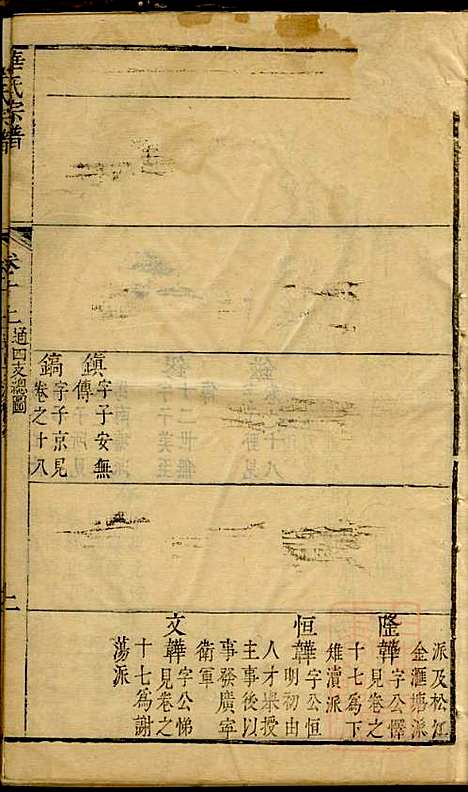 華氏宗譜
卷十二
通四支總圖
鎮字子安無
傳
鎬字子京見
卷之十八
派及松江
金滙塘派
隆韡字公懌
見卷之
十七爲下
雉瀆派
恒韡字公恒
明初由
人才舉授
主事後以
事發廣寧
衛軍
文韡字公悌
見卷之
十七爲謝
蕩派